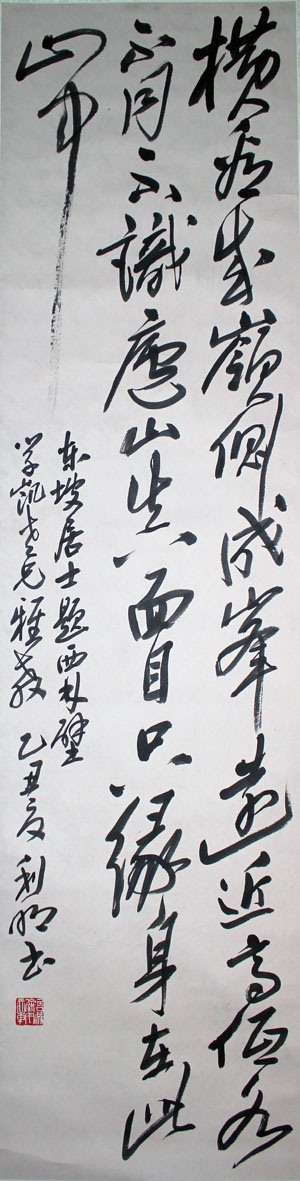 横看成嶺側成峯遠近高低各
不同不識廬山真面目只緣身在此
山中
东坡居士题西林壁
学凯老兄雅教 乙丑夏利明书